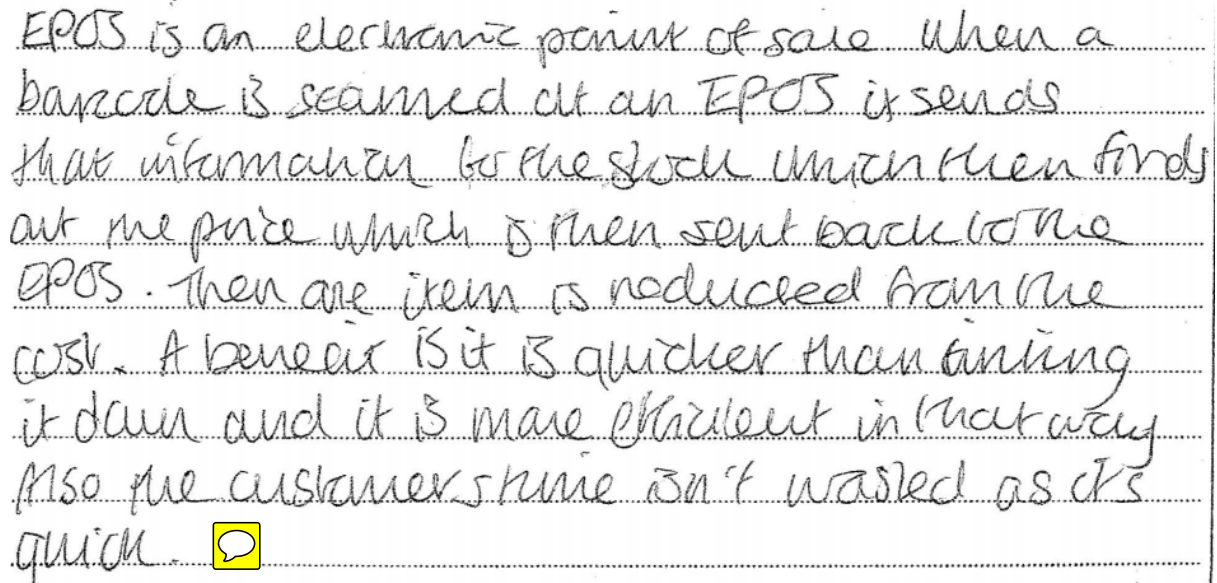 EPOS is an electronic point of sale. When a
barcode is scanned at an EPOS it sends
that information to the stock which then finds
out the price which is then sent back to the
EPOS. Then one item is reduced from the
cost. A benefit is it is quicker than writing
it down and it is more efficient in that way
Also the customers time isn't wasted as it's
quick.